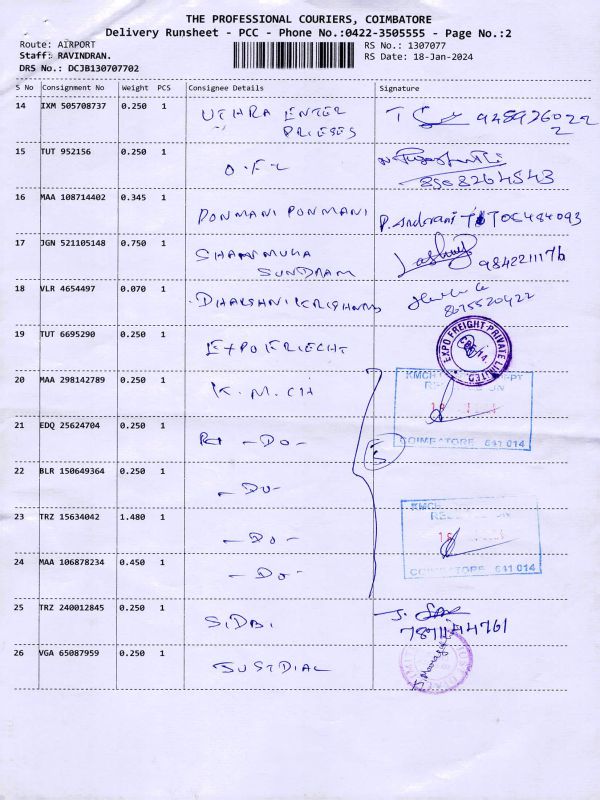 THE PROFESSIONAL COURIERS, COIMBATORE
Delivery Runsheet - PCC - Phone No.:0422-3505555 - Page No.:2
Route: AIRPORT RS No.: 1307077
Staff: RAVINDRAN. RS Date: 18-Jan-2024
DRS No.: DCJB130707702
S No Consignment No Weight PCS Consignee Details Signature
14 IXM 505708737 0.250 1 UTHRA ENTER
PRISES
15 TUT 952156 0.250 1 O.F.L
8508264543
16 MAA 108714402 0.345 1 PONMANI PONMANI
17 JGN 521105148 0.750 1 SHANMUGA
SUNDRAM 9842211176
18 VLR 4654497 0.070 1 DHARSHANI KRISHNA
8675520422
19 TUT 6695290 0.250 1 EXPO FRIECHT
EXPO FREIGHT PRIVATE LIMITED
20 MAA 298142789 0.250 1 K.M.CH
KMCH
COIMBATORE 641 014
21 EDQ 25624704 0.250 1 - DO -
22 BLR 150649364 0.250 1 - DO -
23 TRZ 15634042 1.480 1 - DO -
KMCH
24 MAA 106878234 0.450 1 - DO -
COIMBATORE 641 014
25 TRZ 240012845 0.250 1 SIDBI
26 VGA 65087959 0.250 1 JUSTDIAL